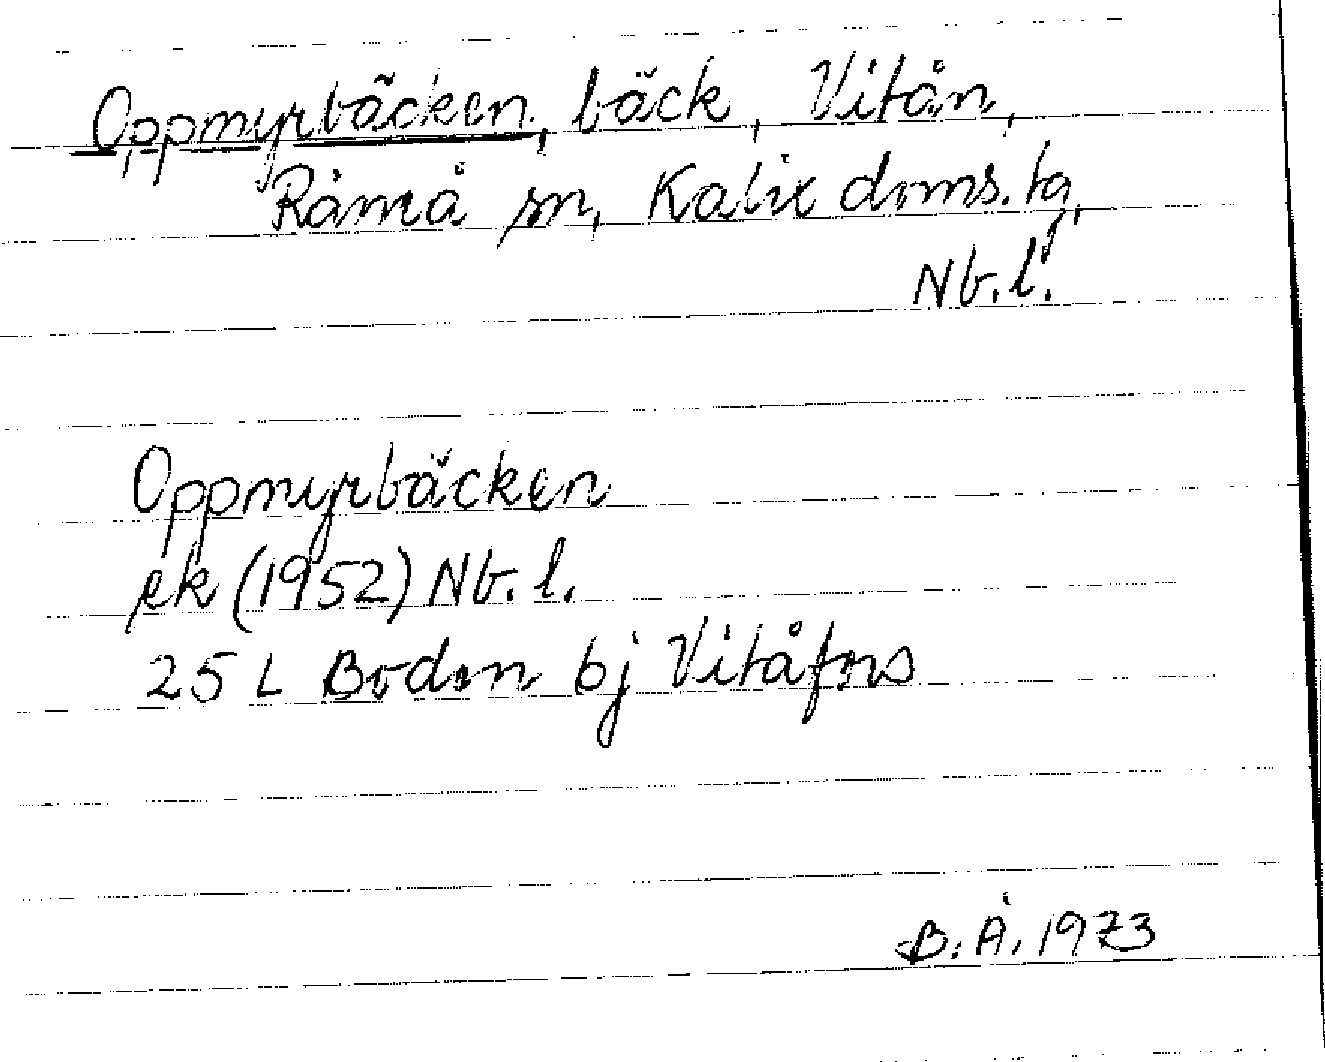 Oppmyrbäcken, bäck, Vitån,
Råneå sn, Kalix doms.ta,
Nb.l.
Oppmyrbäcken
ek (1952) Nb.l.
25 L Boden bj Vitåfors
B.Å. 1973